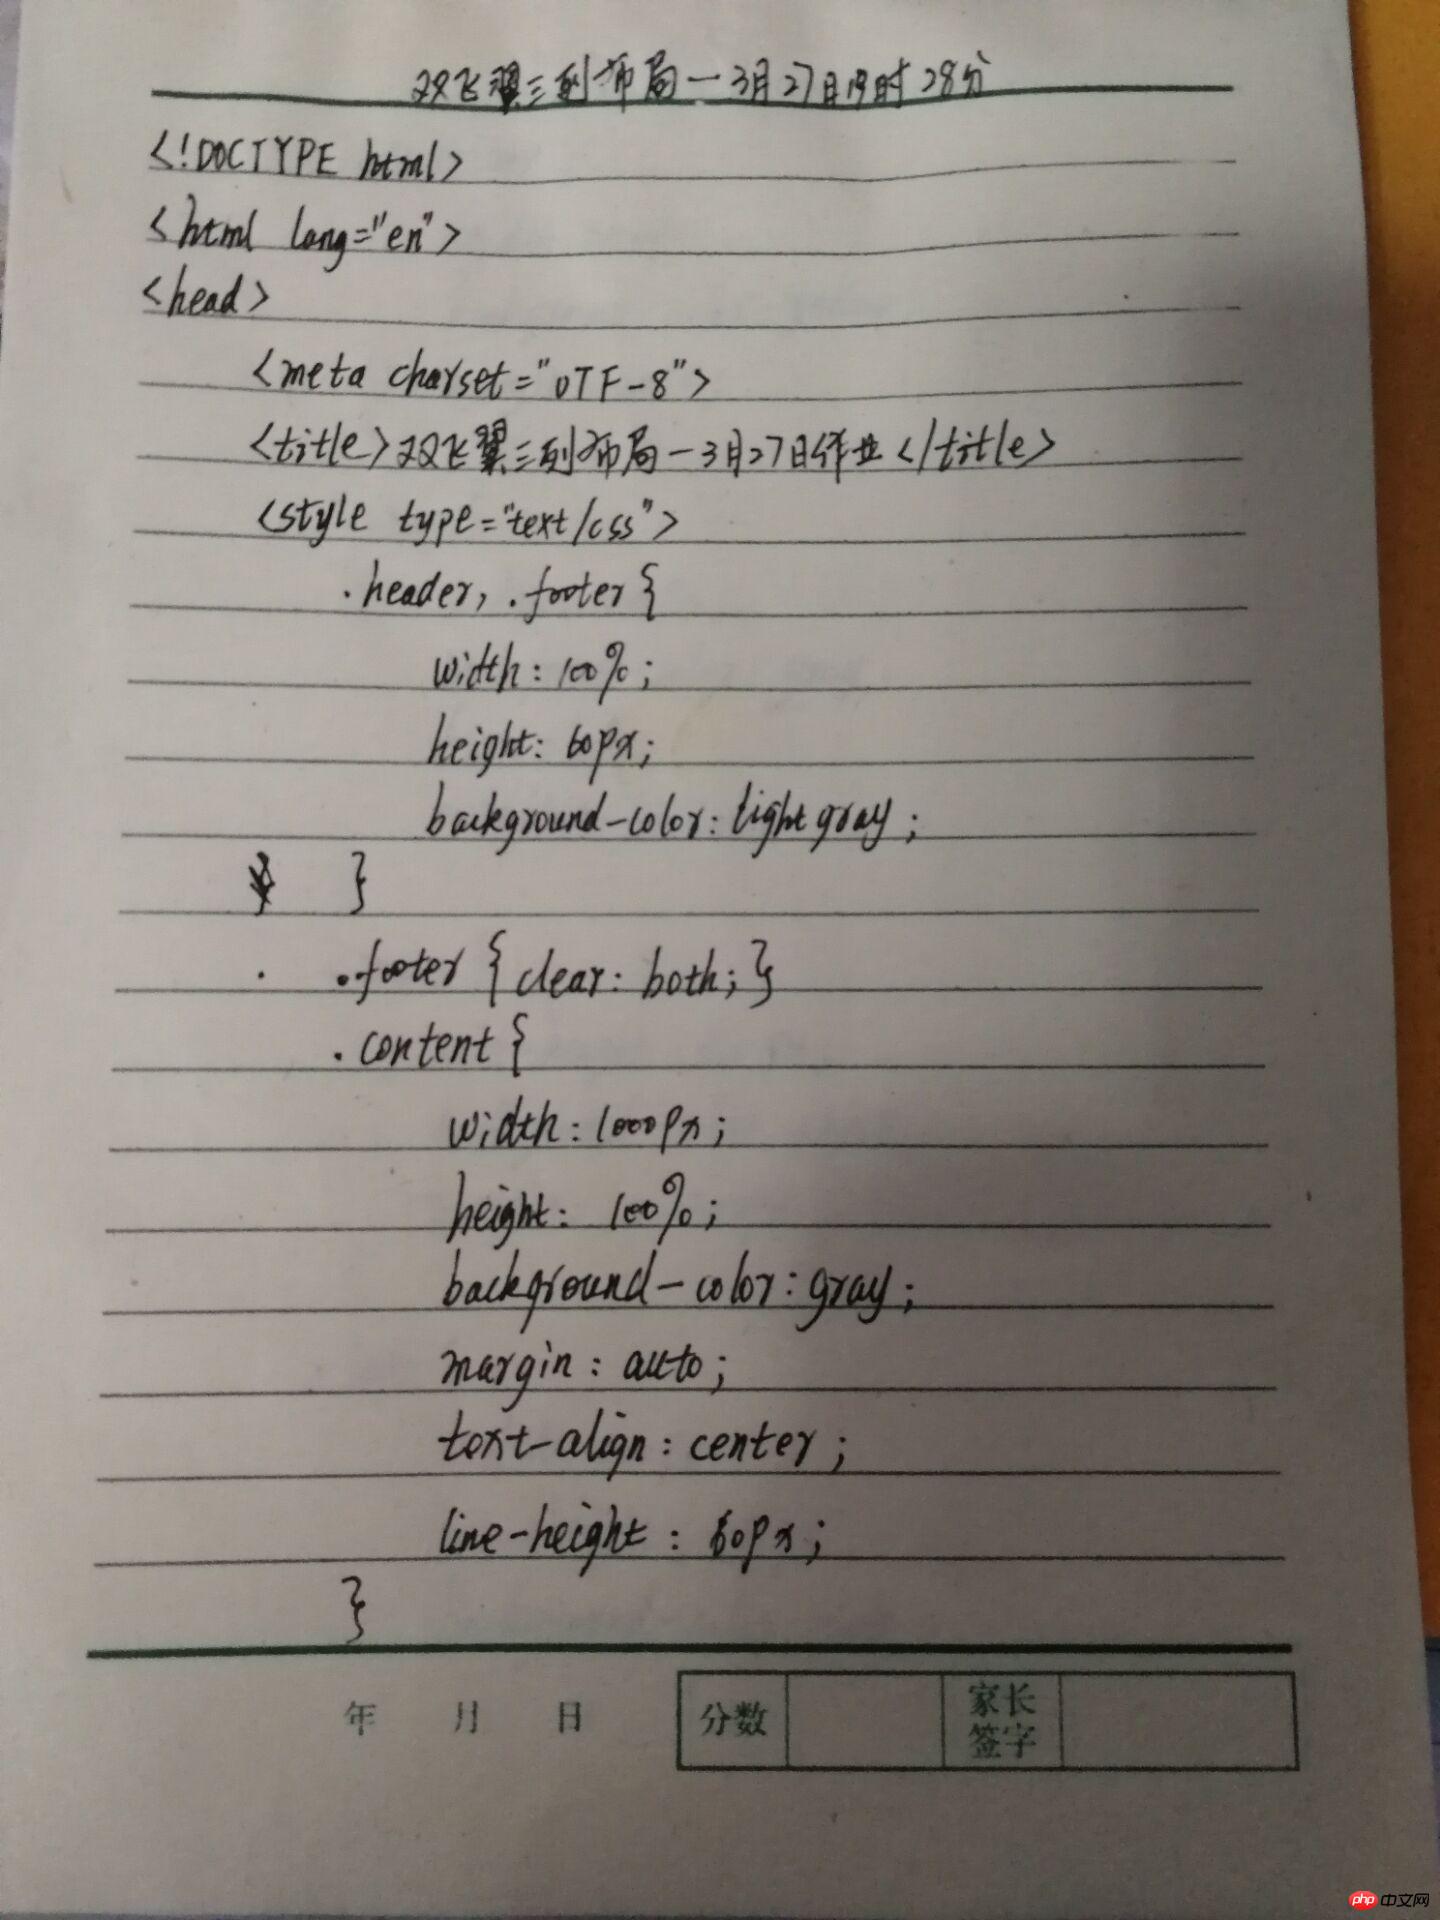 双飞翼三列布局一3月27日19时28分
<!DOCTYPE html>
<html lang="en">
<head>
<meta charset="UTF-8">
<title>双飞翼三列布局一3月27日作业</title>
<style type="text/css">
.header, .footer{
width: 100%;
height: 60px;
background-color: lightgray;
}
.footer{clear: both;}
.content{
width: 1000px;
height: 100%;
background-color: gray;
margin: auto;
text-align: center;
line-height: 60px;
}
年 月 日 分数 家长签字
php 中文网